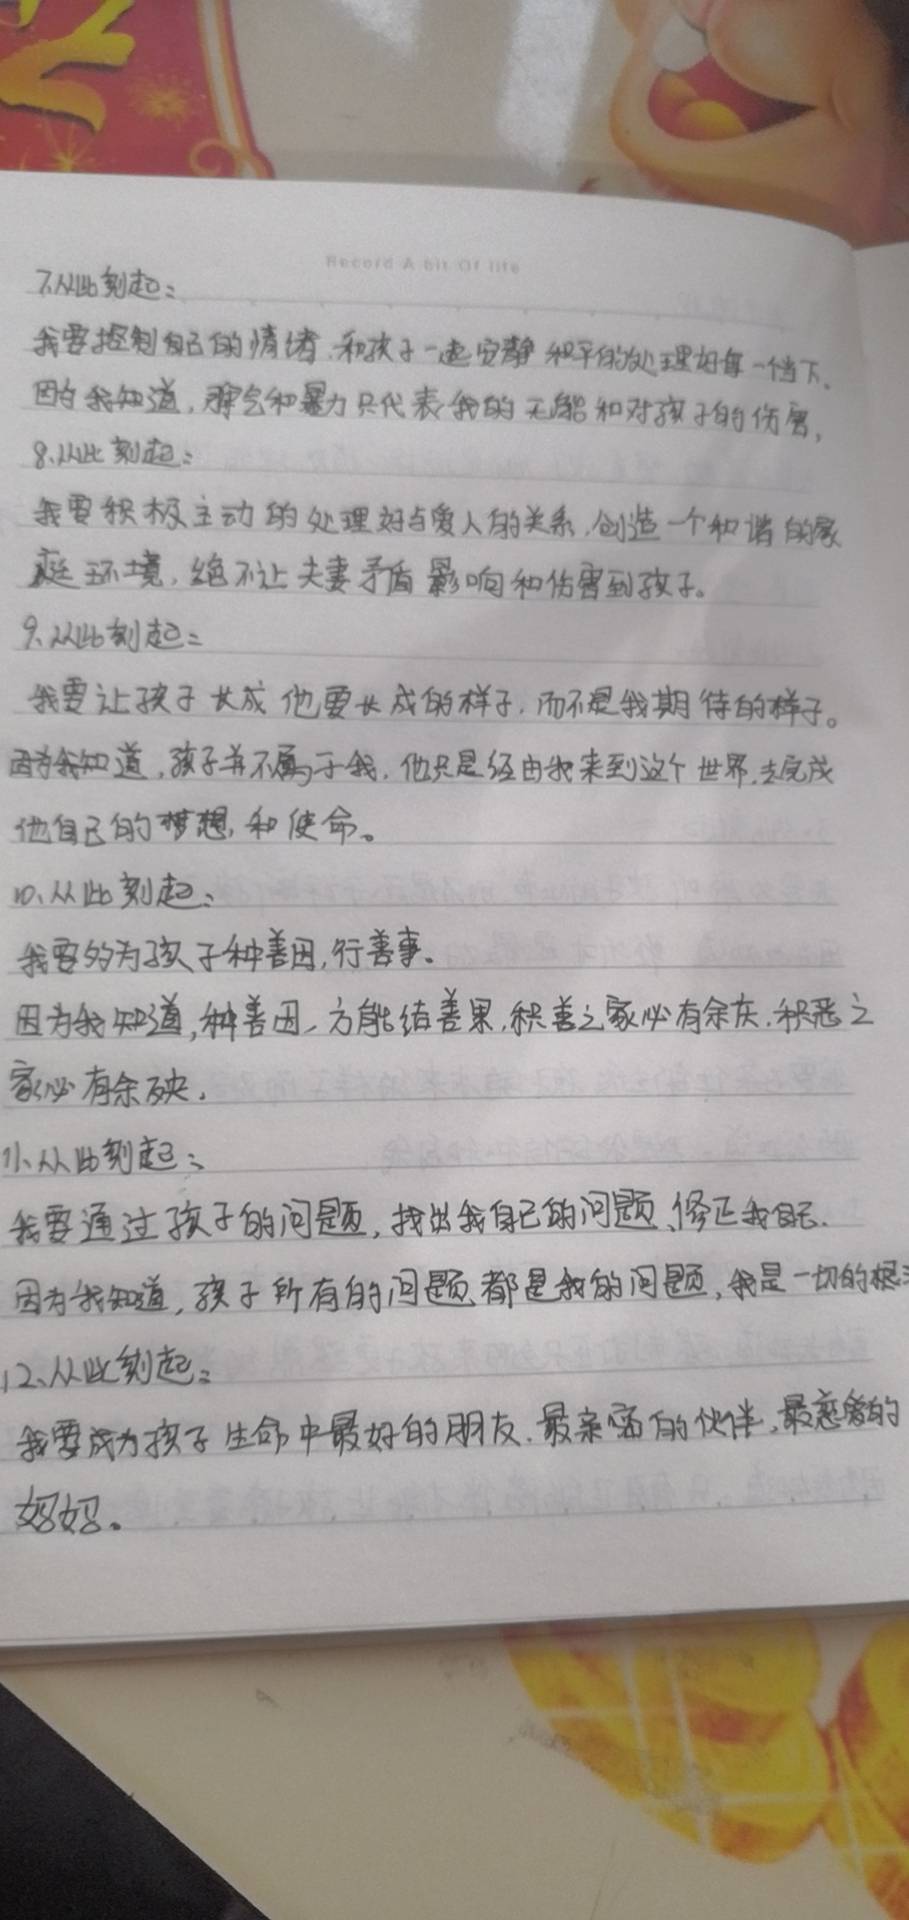 Record A bit Of life
7.从此刻起：
我要控制自己的情绪，和孩子一起安静和平的处理好每一个当下。
因为我知道，脾气和暴力只代表我的无能和对孩子的伤害，
8.从此刻起：
我要积极主动的处理好与爱人的关系，创造一个和谐的家
庭环境，绝不让夫妻矛盾影响和伤害到孩子。
9、从此刻起：
我要让孩子长成他要长成的样子，而不是我期待的样子。
因为我知道，孩子并不属于我，他只是经由我来到这个世界，去完成
他自己的梦想，和使命。
10、从此刻起：
我要的为孩子种善因，行善事。
因为我知道，种善因、方能结善果，积善之家必有余庆，积恶之
家必有余殃，
11、从此刻起：
我要通过孩子的问题，找出我自己的问题、修正我自己．
因为我知道，孩子所有的问题都是我的问题，我是一切的根
12、从此刻起：
我要成为孩子生命中最好的朋友，最亲密的伙伴，最慈爱的
妈妈。